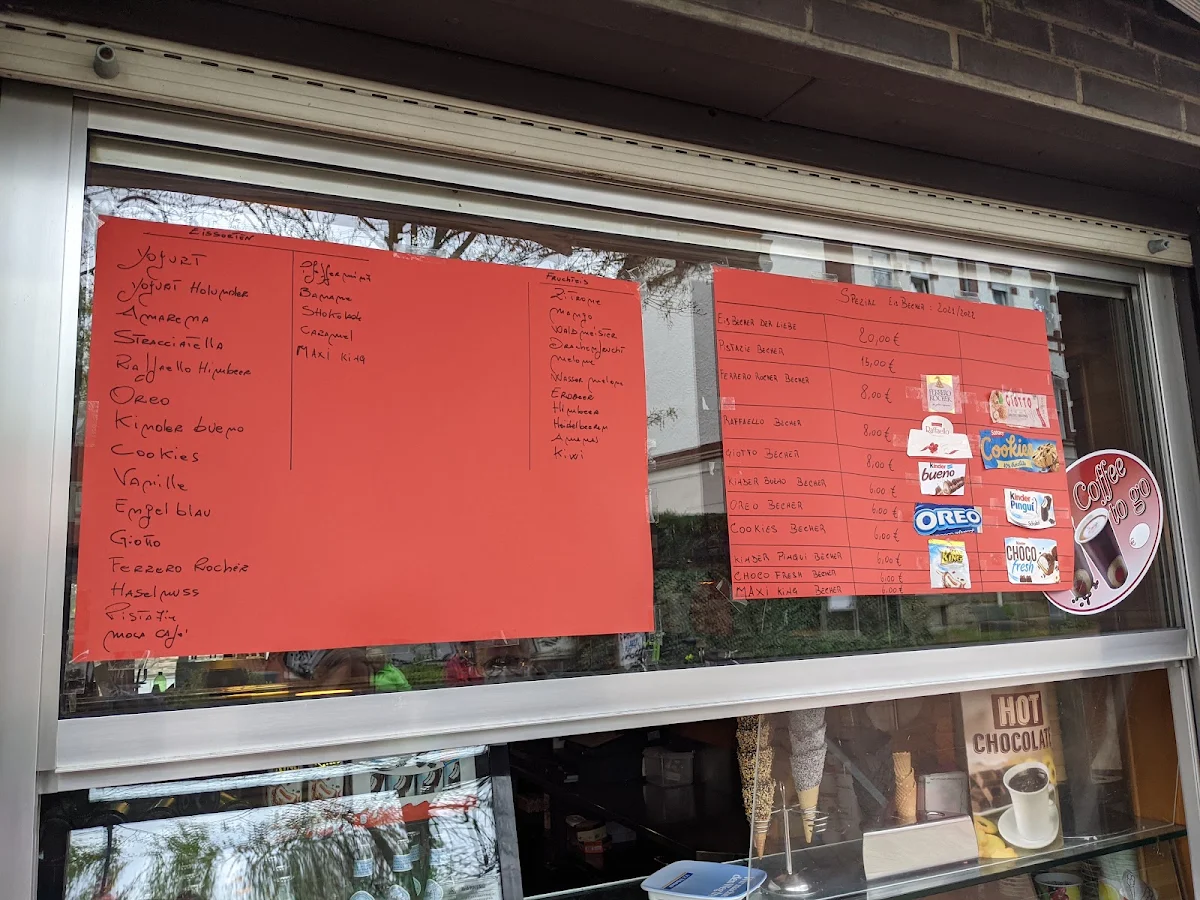 Eissorten
Yogurt
Yogurt Holunder
Amarena
Stracciatella
Raffaello Himbeer
Oreo
Kinder bueno
Cookies
Vanille
Engel blau
Giotto
Ferrero Rocher
Haselnuss
Pistazie
Moca Café
Pfefferminz
Banane
Shokolade
Caramel
Maxi King
Fruchteis
Zitrone
Mango
Waldmeister
Drachenfrucht
Melone
Wasser melone
Erdbeer
Himbeer
Heidelbeeren
Ananas
Kiwi
Spezial Eis Becher: 2021/2022
Eis Becher der Liebe 20,00 €
Pistazie Becher 15,00 €
Ferrero Rocher Becher 8,00 €
Raffaello Becher 8,00 €
Giotto Becher 8,00 €
Kinder Bueno Becher 6,00 €
Oreo Becher 6,00 €
Cookies Becher 6,00 €
Kinder Pingui Becher 6,00 €
Choco Fresh Becher 6,00 €
Maxi King Becher 6,00 €
FERRERO
ROCHER
GIOTTO
Raffaello
Cookies
Kinder
bueno
Kinder
Pinguí
OREO
KING
CHOCO
fresh
Coffee
to go
HOT
CHOCOLATE